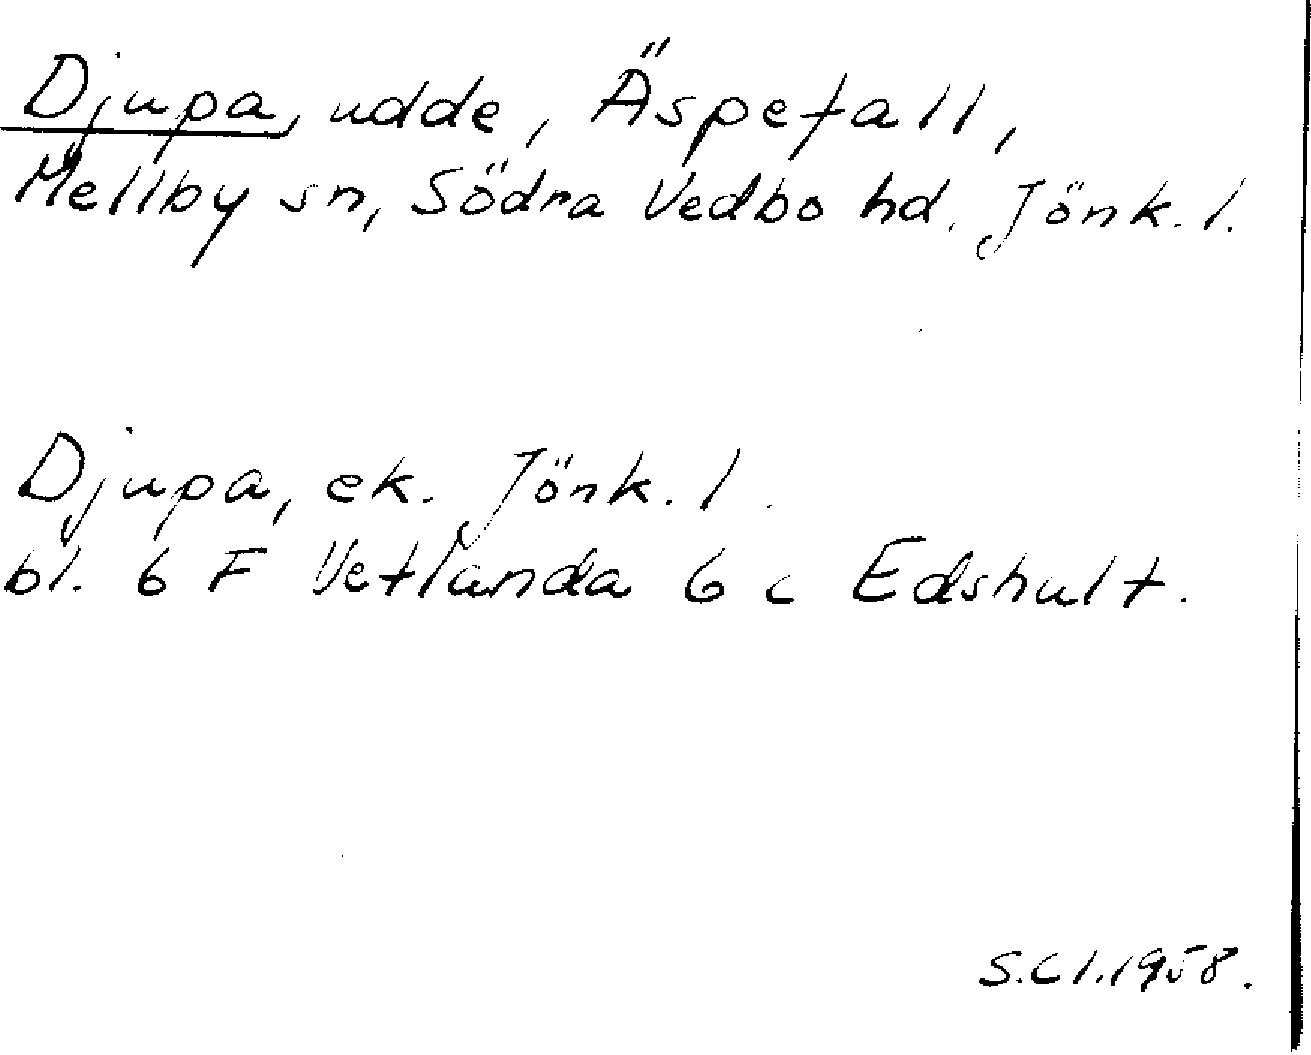 Djupa, udde, Äspefall,
Mellby sn, Södra Vedbo hd. Jönk. l.
Djupa, ek. Jönk. l.
bl. 6 F Vetlanda 6 c Edshult.
S.Cl.1958.